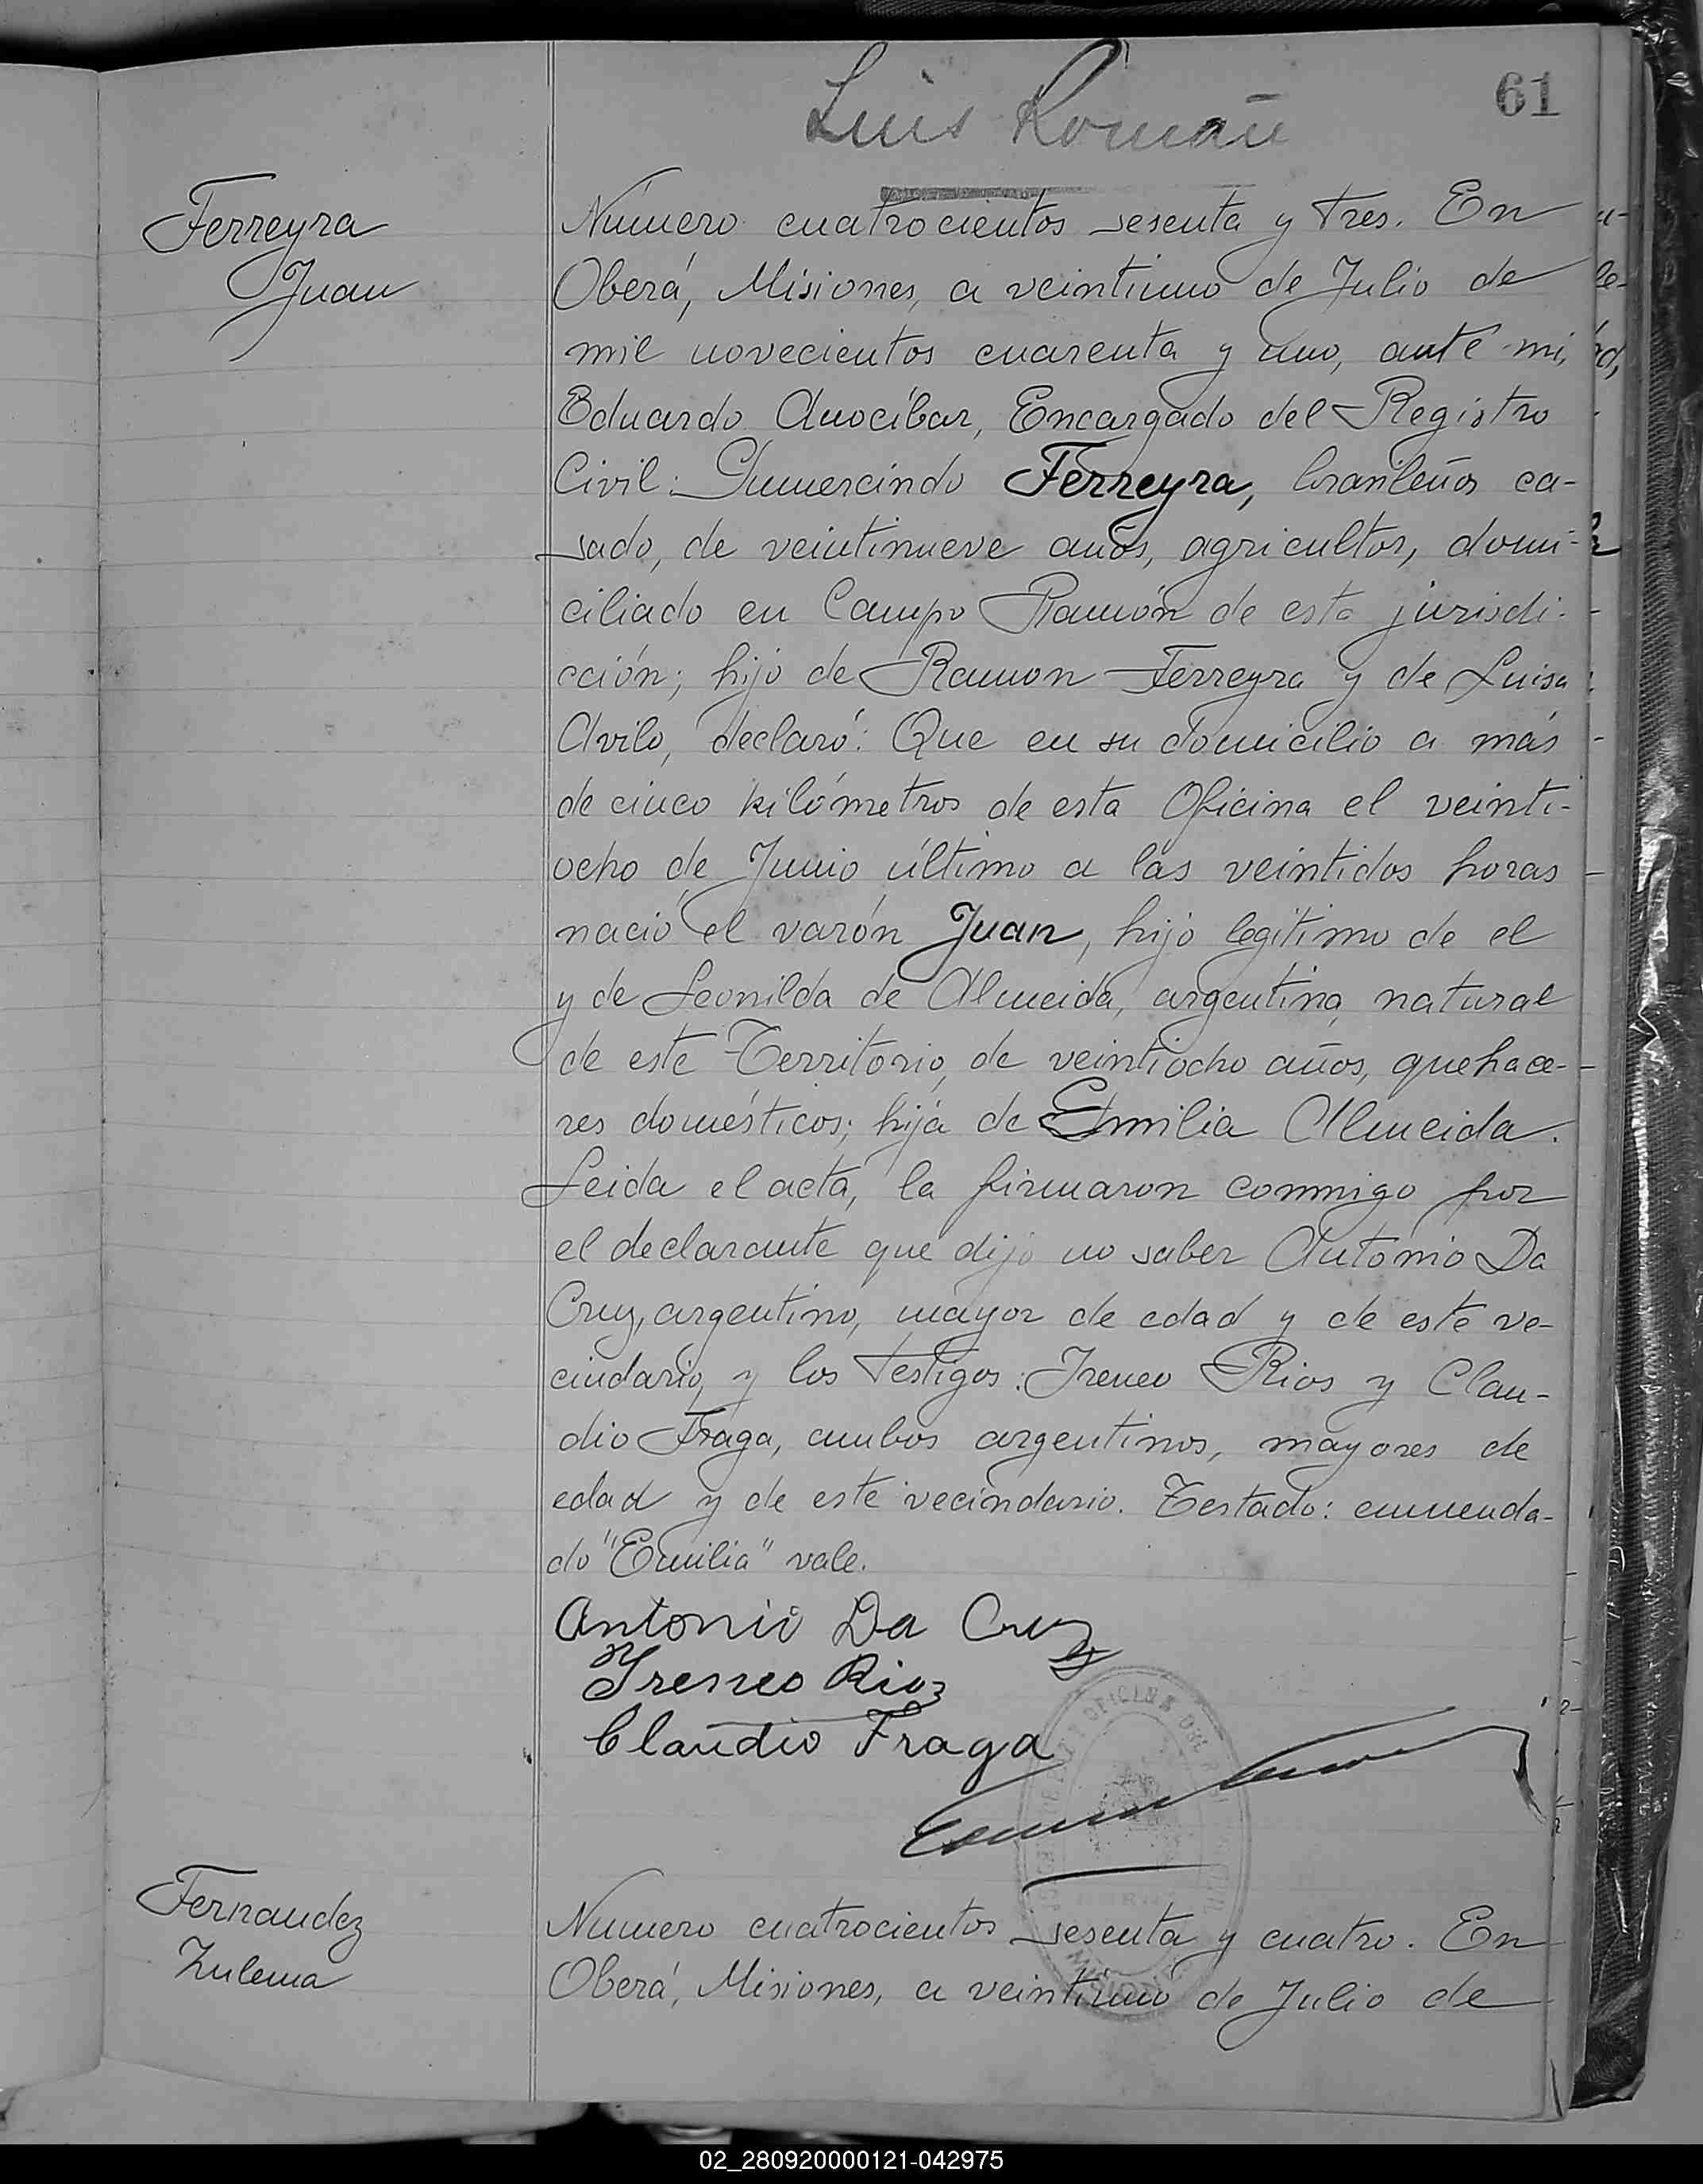 61
Luis Román
Ferreyra
Juan
Número cuatrocientos sesenta y tres. En
Oberá, Misiones, a veintiuno de Julio de
mil novecientos cuarenta y uno, ante mi,
Eduardo Anocíbar, Encargado del Registro
Civil: Gumercindo Ferreyra, brasileño ca-
sado, de veintinueve años, agricultor, domi-
ciliado en Campo Ramón de esta jurisdi-
cción; hijo de Ramon Ferreyra y de Luisa
Avilo, declaró: Que en su domicilio a más
de cinco kilómetros de esta Oficina el veinti-
ocho de Junio último a las veintidos horas
nació el varón Juan, hijo legítimo de el
y de Leonilda de Almeida, argentina, natural
de este Territorio, de veintiocho años, quehace-
res domésticos; hija de Emilia Almeida.
Leida el acta, la firmaron conmigo por
el declarante que dijo no saber Antonio Da
Cruz, argentino, mayor de edad y de este ve-
cindario, y los testigos: Ireneo Rios y Clau-
dio Fraga, ambos argentinos, mayores de
edad y de este vecindario. Testado: enmenda-
do "Emilia" vale.
Antonio Da Cruz
Ireneo Rios
Claudio Fraga
OFICINA DEL
Fernandez
Zulema
Numero cuatrocientos sesenta y cuatro. En
Oberá, Misiones, a veintiuno de Julio de
02_280920000121-042975